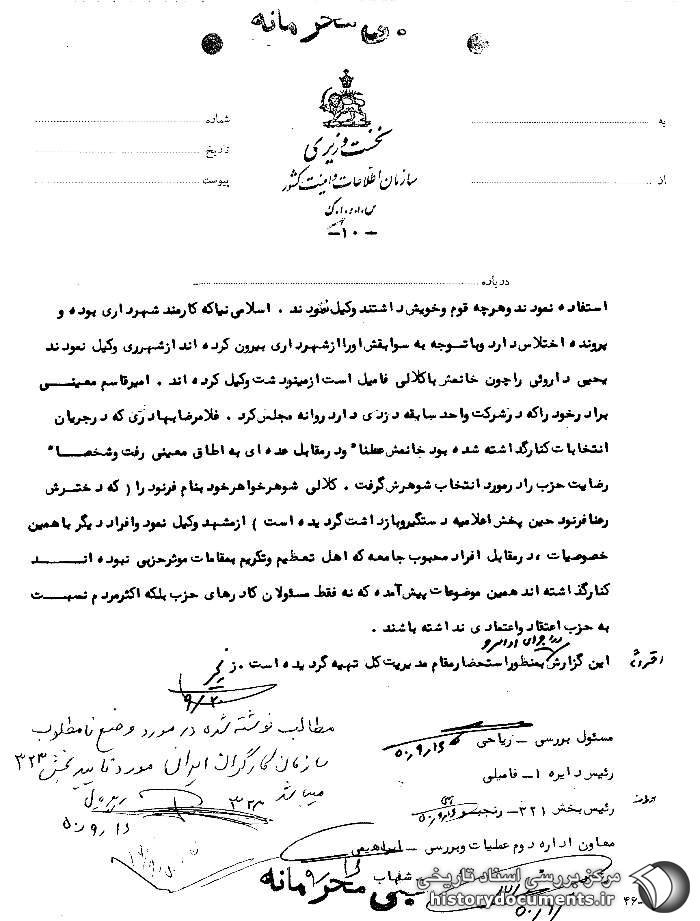 خیلی محرمانه
نخست وزیری
سازمان اطلاعات و امنیت کشور
س.ا.و.ا.ک
به
از
شماره
تاریخ
پیوست
-۱۰-
درباره
استفاده نمودند وهرچه قوم وخویش داشتند وکیل نمودند . اسلامی نیاکه کارمند شهرداری بوده و
پرونده اختلاس دارد وباتوجه به سوابقش اوراازشهرداری بیرون کرده اند ازشهرری وکیل نمودند
یحیی داروئی راچون خانمش باکلالی فامیل است ازمینودشت وکیل کرده اند . امیرقاسم معینی
برادرخود راکه درشرکت واحد سابقه دزدی دارد روانه مجلس کرد . غلامرضابهادری که درجریان
انتخابات کنارگذاشته شده بود خانمش علنا" ودرمقابل عده ای به اطاق معینی رفت وشخصا"
رضایت حزب رادرمورد انتخاب شوهرش گرفت . کلالی شوهرخواهرخود بنام فرنود را ( که دخترش
رعنا فرنود حین پخش اعلامیه دستگیروبازداشت گردیده است ) ازمشهد وکیل نمود وافراد دیگر باهمین
خصوصیات ، درمقابل افراد محبوب جامعه که اهل تعظیم وتکریم بمقامات موثرحزبی نبوده اند
کنارگذاشته اند همین موضوعات پیش آمده که نه فقط مسئولان کادرهای حزب بلکه اکثرمردم نسبت
به حزب اعتقاد واعتمادی نداشته باشند .
این گزارش بمنظوراستحضارمقام مدیریت کل تهیه گردیده است . ز
۹/۲۰
مطالب نوشته شده در مورد وضع نامطلوب
سازمان کارگران ایران مورد تأیید بخش ۳۲۳
میباشد
۳۲۳
مسئول بررسی - ریاحی
رئیس دایره ۱ - فامیلی
رئیس بخش ۳۲۱ - رنجبر
معاون اداره دوم عملیات وبررسی - ابراهیمی
شهاب
خیلی محرمانه
مرکز بررسی اسناد تاریخی
historydocuments.ir